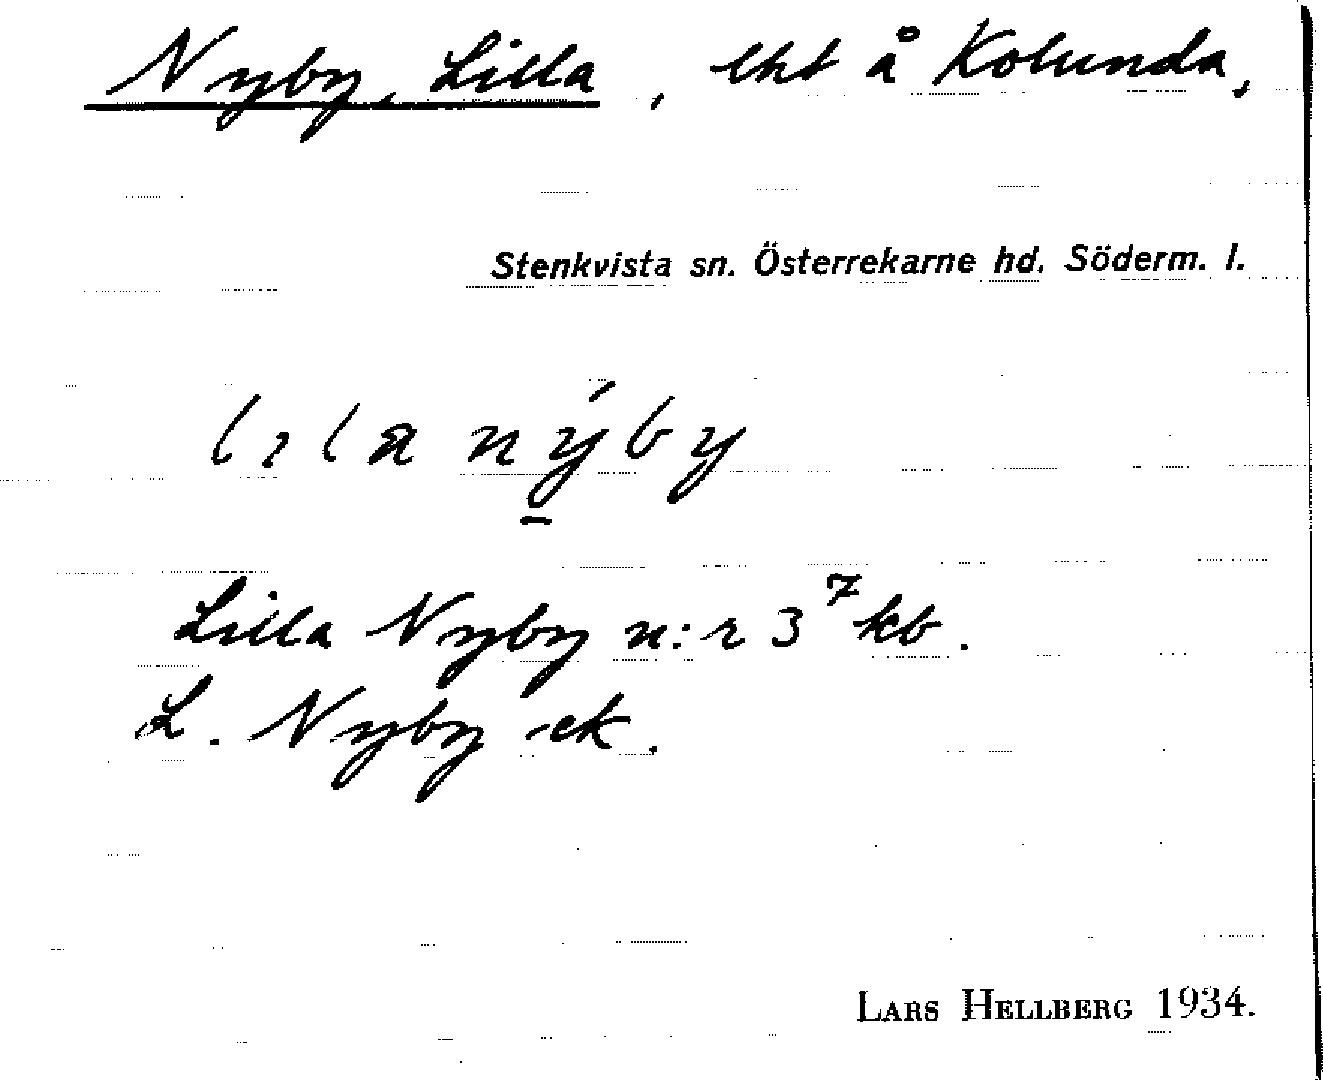 Nyby, Lilla, lht å Kolunda,
Stenkvista sn. Österrekarne hd. Söderm. l.
lıla nýby
Lilla Nyby n:r 3⁷ kb.
L. Nyby ek.
LARS HELLBERG 1934.